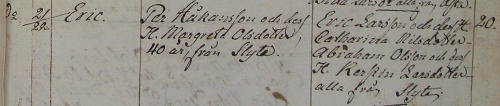 Do 21/22 Eric.
Per Håkansson och des
H. Margreta Olsdotter,
40 år, från Slyte.
Eric Larson och des H. 20.
Catharina Nilsdotter
Abraham Olson och des
H. Kerstin Larsdotter
alla från Slyte,